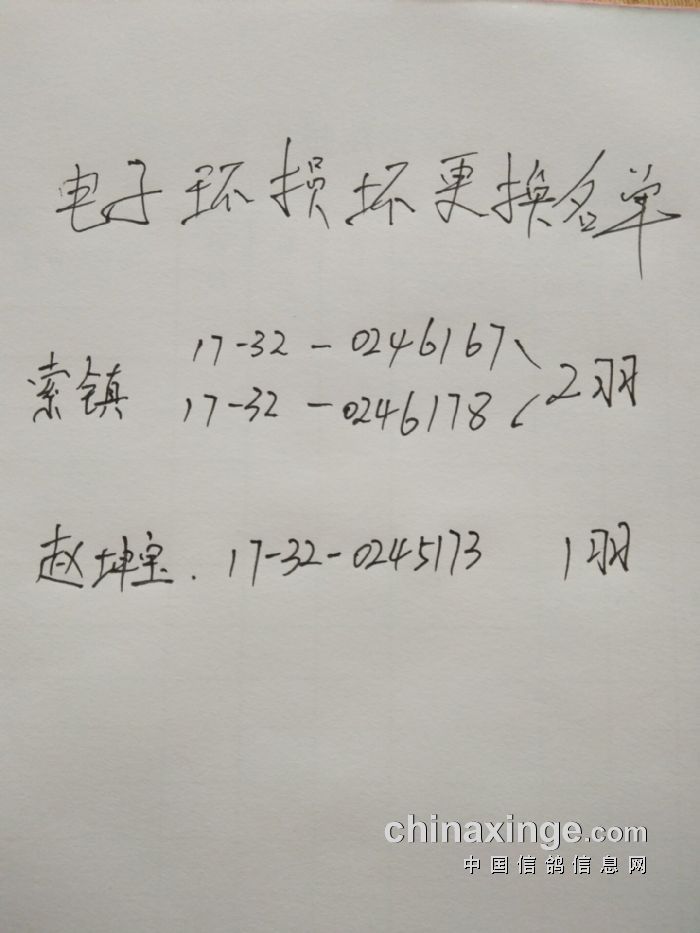 电子环损坏更换名单
17-32-0246167
索镇 2羽
17-32-0246178
赵坤宝. 17-32-0245173 1羽
chinaxinge.com
中国信鸽信息网